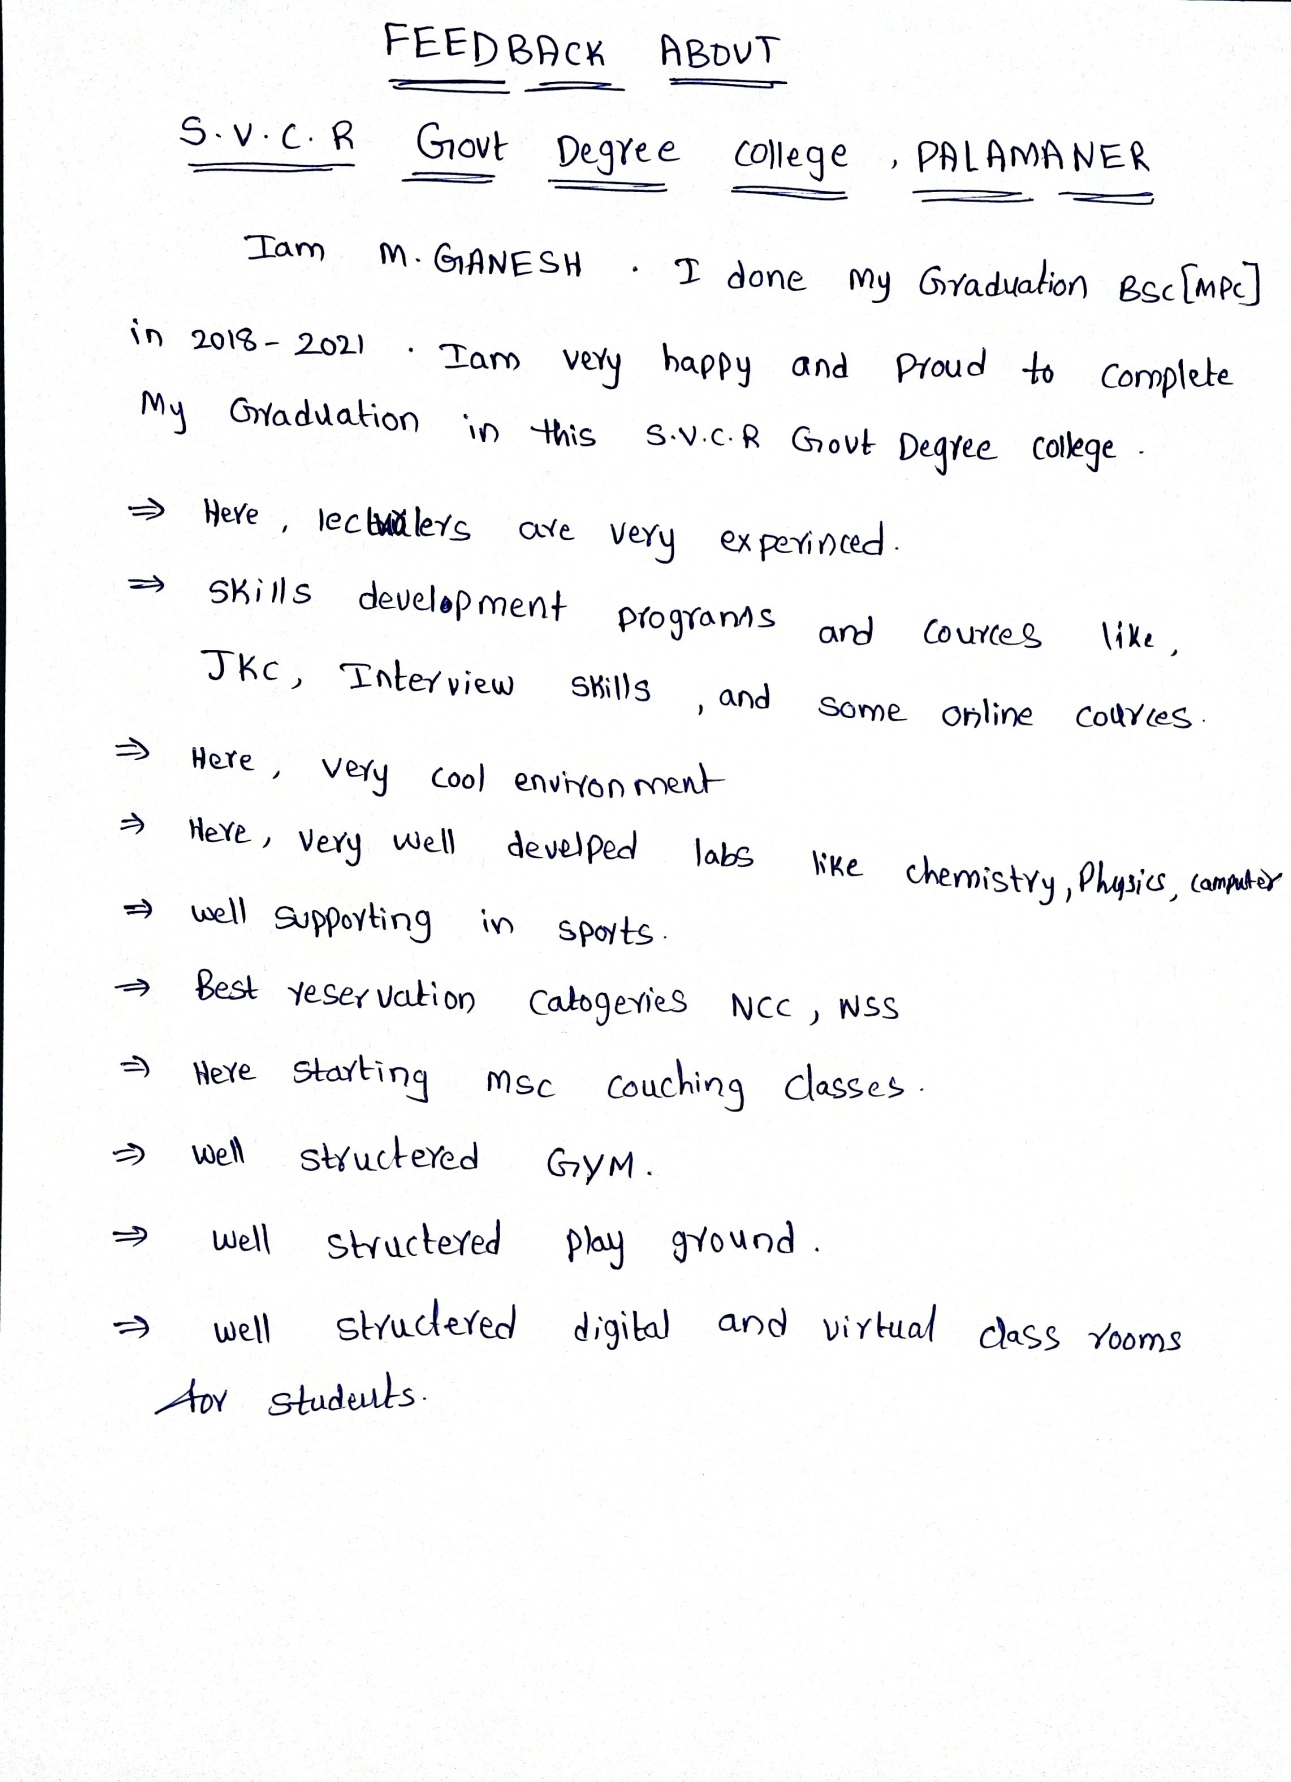 FEEDBACK ABOUT
S.V.C.R Govt Degree college, PALAMANER
Iam M. GANESH. I done My Graduation BSC [MPC]
in 2018-2021. Iam very happy and Proud to complete
My Graduation in this S.V.C.R Govt Degree college.
⇒ Here, are very experinced.
⇒ Skills development programs and cources like,
JKC, Interview Skills, and Some online cources.
⇒ Here, very cool environment
⇒ Here, very well develped labs like chemistry, Physics, computer
⇒ well supporting in sports.
⇒ Best reservation Catogeries NCC, NSS
⇒ Here starting MSC couching classes.
⇒ well structered GYM.
⇒ well structered play ground.
⇒ well structered digital and virtual class rooms
for students.